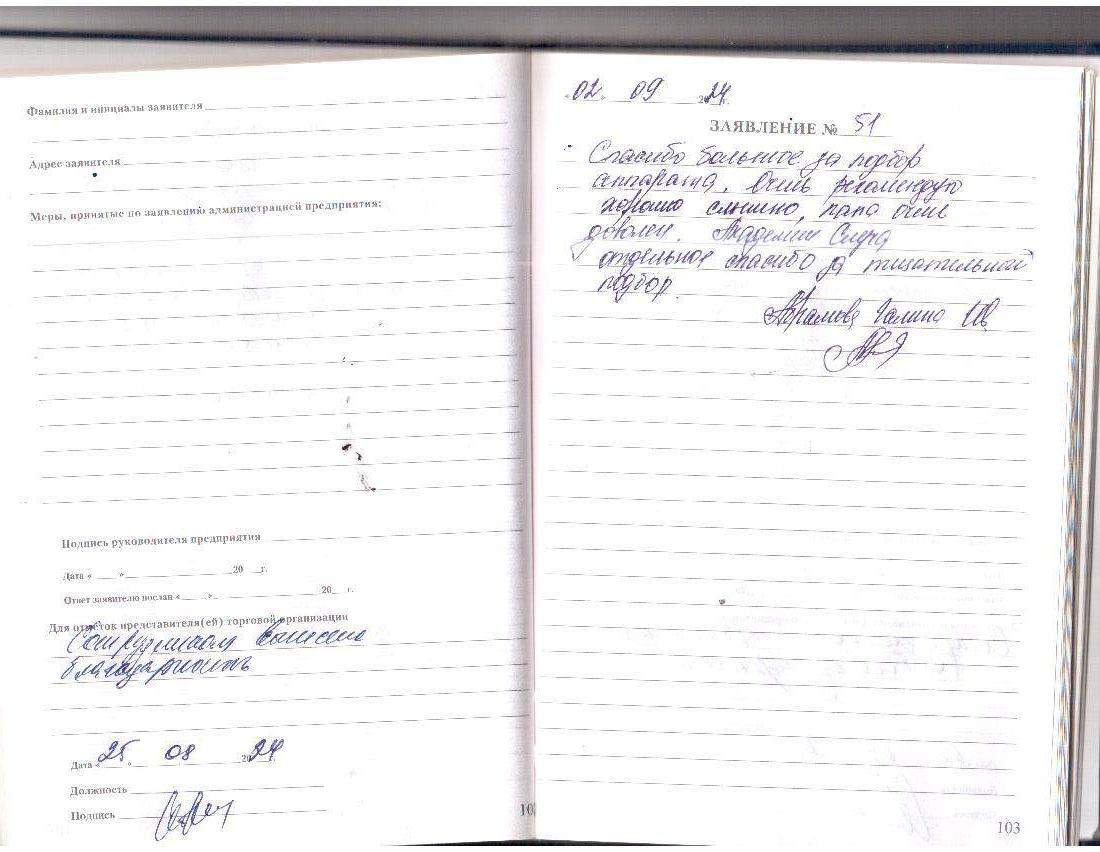 Фамилия и инициалы заявителя
Адрес заявителя
Меры, принятые по заявлению администрацией предприятия:
Подпись руководителя предприятия
Дата « » 20 г.
Ответ заявителю послан « » 20 г.
Для отметок представителя(ей) торговой организации
Сотрудникам вынесена
благодарность
Дата « 25 » 08 2024
Должность
Подпись
10
« 02 » 09 2024г.
ЗАЯВЛЕНИЕ № 51
Спасибо большое за подбор
аппарата. Очень рекомендую
хорошо слышно, папа очень
доволен. Академии Слуха
отдельное спасибо за тщательный
подбор.
Галина
103